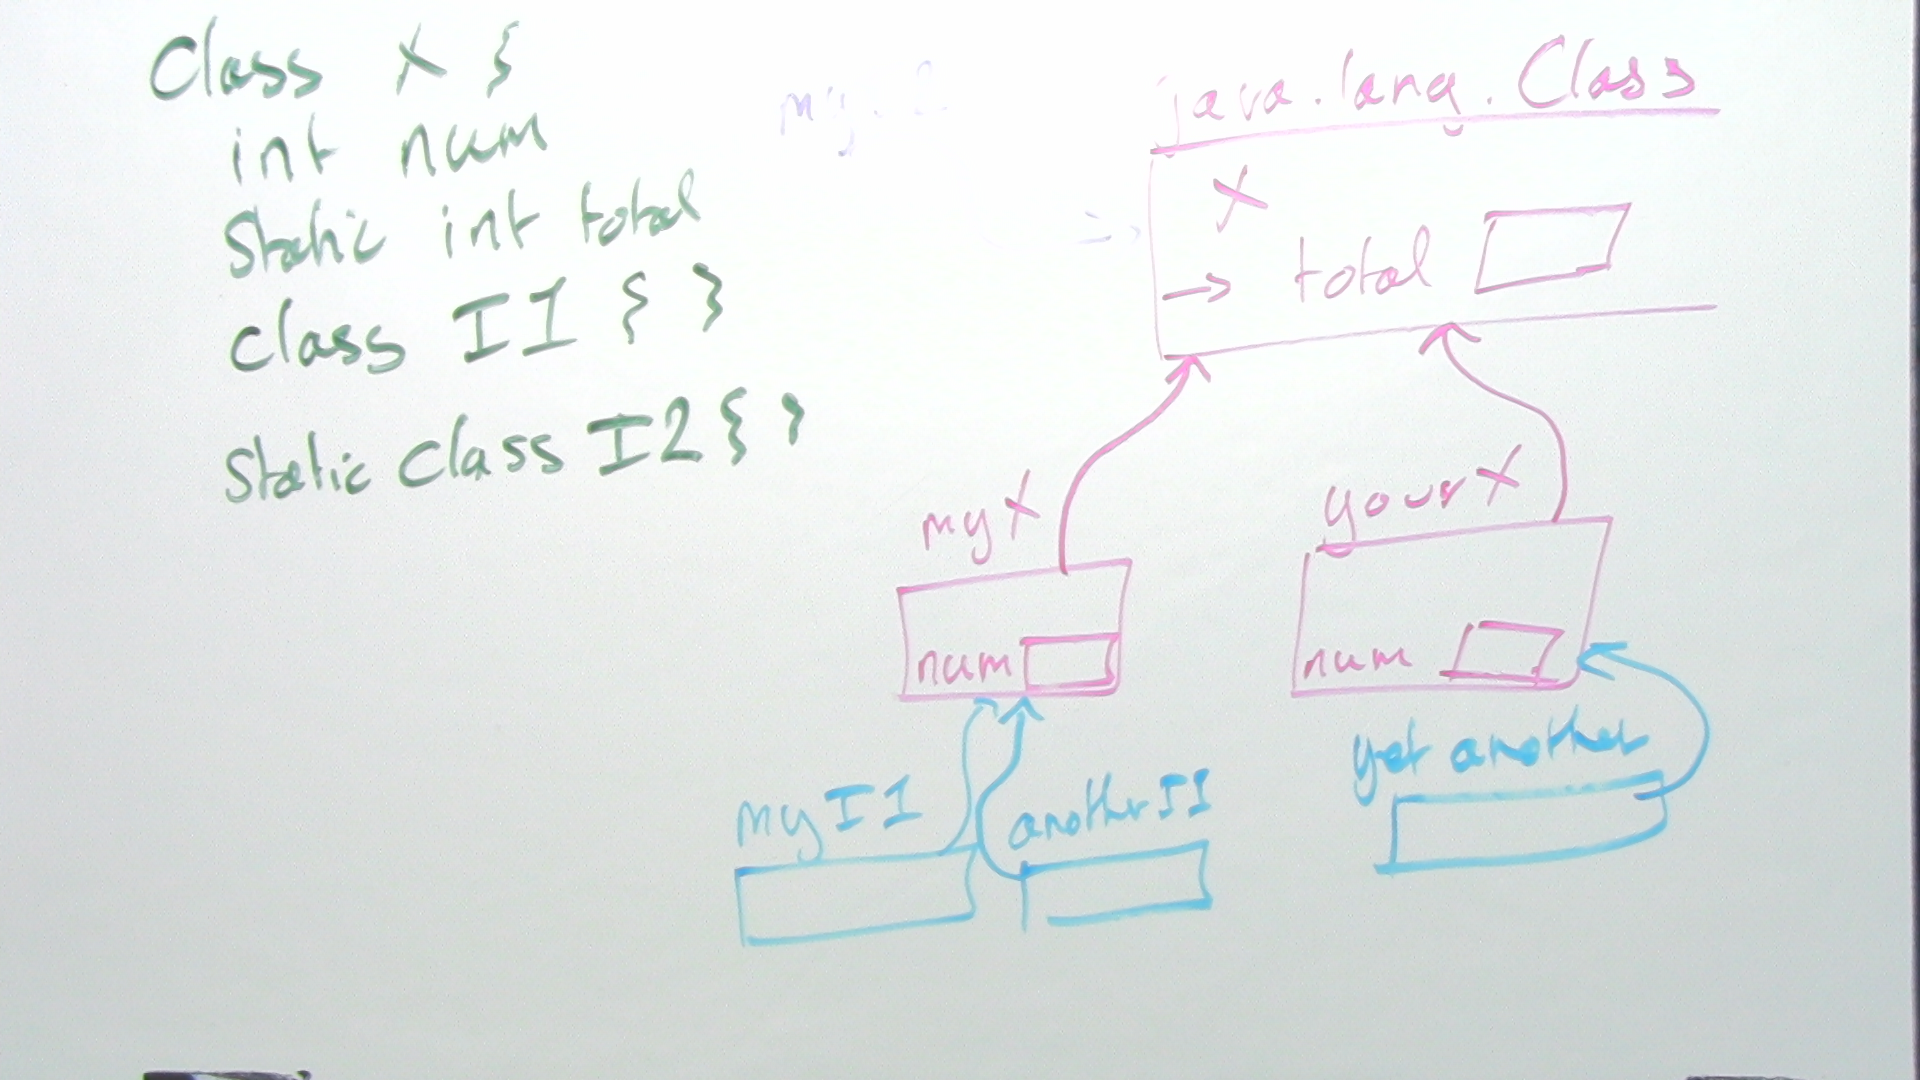 Class X {
int num
Static int total
class I1 { }
Static class I2 { }
java.lang.Class
X
→ total
myX
num
yourX
num
myI1
anotherI1
yet another